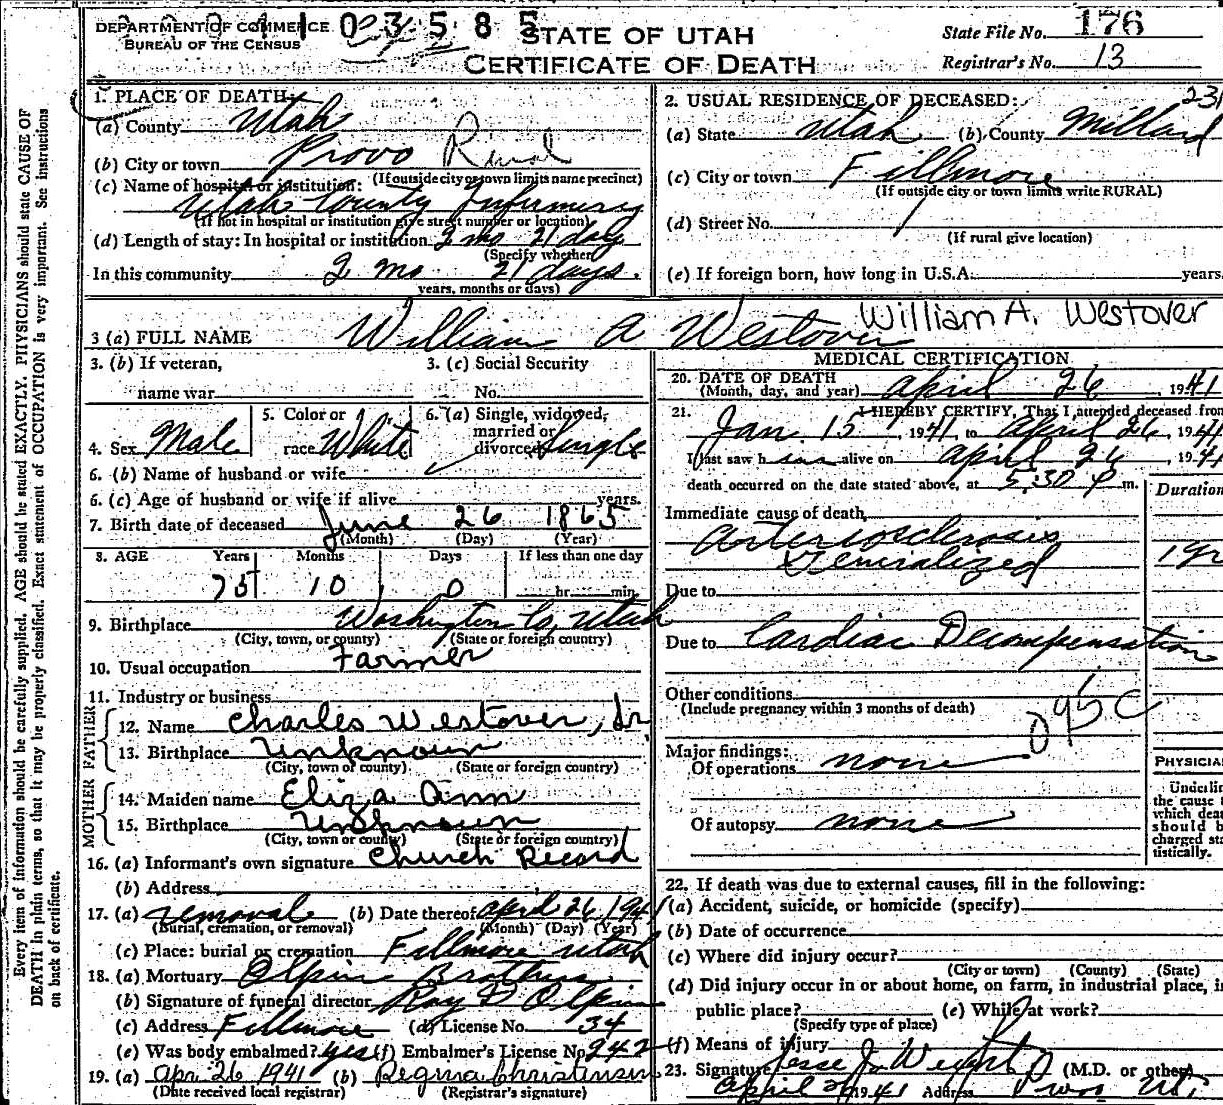 DEPARTMENT OF COMMERCE
BUREAU OF THE CENSUS
03585
STATE OF UTAH
CERTIFICATE OF DEATH
State File No. 176
Registrar's No. 13
Every item of information should be carefully supplied. AGE should be stated EXACTLY. PHYSICIANS should state CAUSE OF
DEATH in plain terms, so that it may be properly classified. Exact statement of OCCUPATION is very important. See Instructions
on back of certificate.
1. PLACE OF DEATH:
(a) County Utah
(b) City or town Provo Rural
(If outside city or town limits name precinct)
(c) Name of hospital or institution:
Utah County Infirmary
(If not in hospital or institution give street number or location)
(d) Length of stay: In hospital or institution 2 mo 21 days
(Specify whether
In this community 2 mo 21 days.
years, months or days)
2. USUAL RESIDENCE OF DECEASED:
(a) State Utah (b) County Millard
(c) City or town Fillmore
(If outside city or town limits write RURAL)
(d) Street No.
(If rural give location)
(e) If foreign born, how long in U.S.A. years.
3 (a) FULL NAME William A Westover William A. Westover
3. (b) If veteran,
name war
3. (c) Social Security
No.
4. Sex Male
5. Color or
race White
6. (a) Single, widowed,
married or
divorced Single
6. (b) Name of husband or wife
6. (c) Age of husband or wife if alive years.
7. Birth date of deceased June 26 1865
(Month) (Day) (Year)
8. AGE Years Months Days If less than one day
75 10 0 hr. min.
9. Birthplace Washington Co, Utah
(City, town, or county) (State or foreign country)
10. Usual occupation Farmer
11. Industry or business
FATHER
12. Name Charles Westover, Sr
13. Birthplace Unknown
(City, town or county) (State or foreign country)
MOTHER
14. Maiden name Eliza Ann
15. Birthplace Unknown
(City, town or county) (State or foreign country)
16. (a) Informant's own signature Church Record
(b) Address
17. (a) removal (b) Date thereof April 26 1941
(Burial, cremation, or removal) (Month) (Day) (Year)
(c) Place: burial or cremation Fillmore Utah
18. (a) Mortuary Olpin Brothers
(b) Signature of funeral director Roy D Olpin
(c) Address Fillmore (d) License No. 34
(e) Was body embalmed? yes (f) Embalmer's License No 242
19. (a) Apr. 26 1941 (b) Regina Christensen
(Date received local registrar) (Registrar's signature)
MEDICAL CERTIFICATION
20. DATE OF DEATH
(Month, day, and year) April 26, 1941
21. I HEREBY CERTIFY, That I attended deceased from
Jan. 15, 1941, to April 26, 1941
I last saw h alive on April 26, 1941
death occurred on the date stated above, at 5:30 P m.
Duration
Immediate cause of death
Arteriosclerosis
Generalized 1 yr
Due to
Due to Cardiac Decompensation
Other conditions
(Include pregnancy within 3 months of death)
95 C
Major findings:
Of operations none
Of autopsy none
PHYSICIAN
Underline
the cause
which death
should b
charged sta
tistically.
22. If death was due to external causes, fill in the following:
(a) Accident, suicide, or homicide (specify)
(b) Date of occurrence
(c) Where did injury occur?
(City or town) (County) (State)
(d) Did injury occur in or about home, on farm, in industrial place, in
public place? (e) While at work?
(Specify type of place)
(f) Means of injury
23. Signature Jesse J. Weight (M.D. or other)
April 1941 Address Provo Ut.